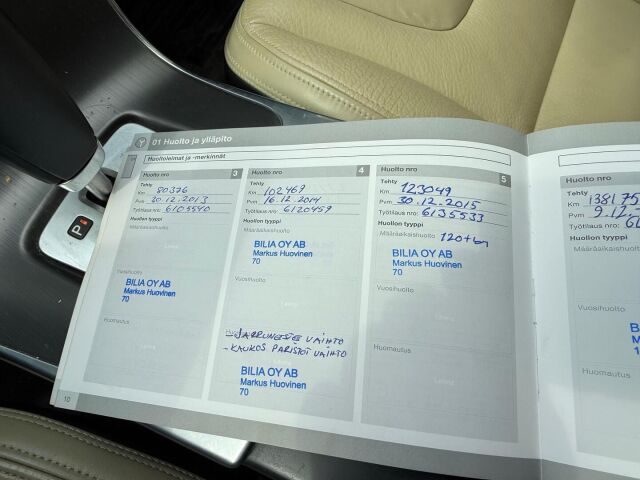 01 Huolto ja ylläpito
Huoltoleimat ja -merkinnät
Huolto nro 3
Tehty
Km 80376
Pvm 20.12.2013
Työtilaus nro: 6105540
Huollon tyyppi
Määräaikaishuolto
Vuosihuolto
BILIA OY AB
Markus Huovinen
70
Huomautus
Leima
Huolto nro 4
Tehty
Km 102469
Pvm 16.12.2014
Työtilaus nro: 6120459
Huollon tyyppi
Määräaikaishuolto
BILIA OY AB
Markus Huovinen
70
Leima
- JARRUNESTE VAIHTO
- KAUKOS PARISTOT VAIHTO
BILIA OY AB
Markus Huovinen
70
Huolto nro 5
Tehty
Km 123049
Pvm 30.12.2015
Työtilaus nro: 6135533
Huollon tyyppi
Määräaikaishuolto 120tkm
BILIA OY AB
Markus Huovinen
70
Vuosihuolto
Huomautus
Leima
Huolto nro
Tehty
Km 138175
Pvm 9.12.
Työtilaus nro:
Huollon tyyppi
Määräaikaishuolto
Vuosihuolto
Huomautus
10
P